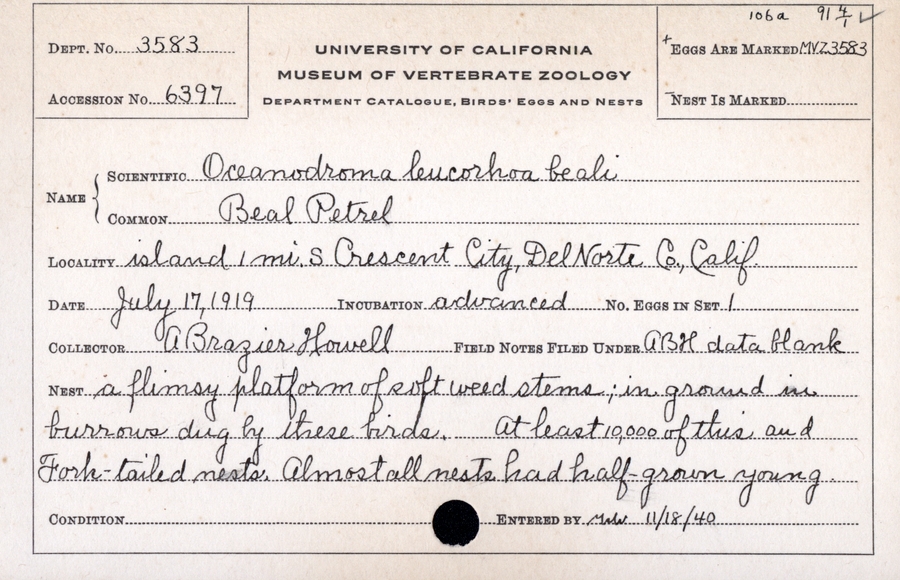 106a 91 4/1 ✓
Dept. No. 3583
UNIVERSITY OF CALIFORNIA
MUSEUM OF VERTEBRATE ZOOLOGY
Department Catalogue, Birds' Eggs and Nests
Accession No. 6397
+Eggs Are Marked MVZ3583
-Nest Is Marked
Name
Scientific Oceanodroma leucorhoa beali
Common Beal Petrel
Locality island 1 mi. S Crescent City, Del Norte Co., Calif.
Date July 17, 1919 Incubation advanced No. Eggs in Set 1
Collector A Brazier Howell Field Notes Filed Under ABH data blank
Nest a flimsy platform of soft weed stems; in ground in
burrows dug by these birds. At least 10,000 of this and
Fork-tailed nests. Almost all nests had half-grown young.
Condition Entered by 11/18/40